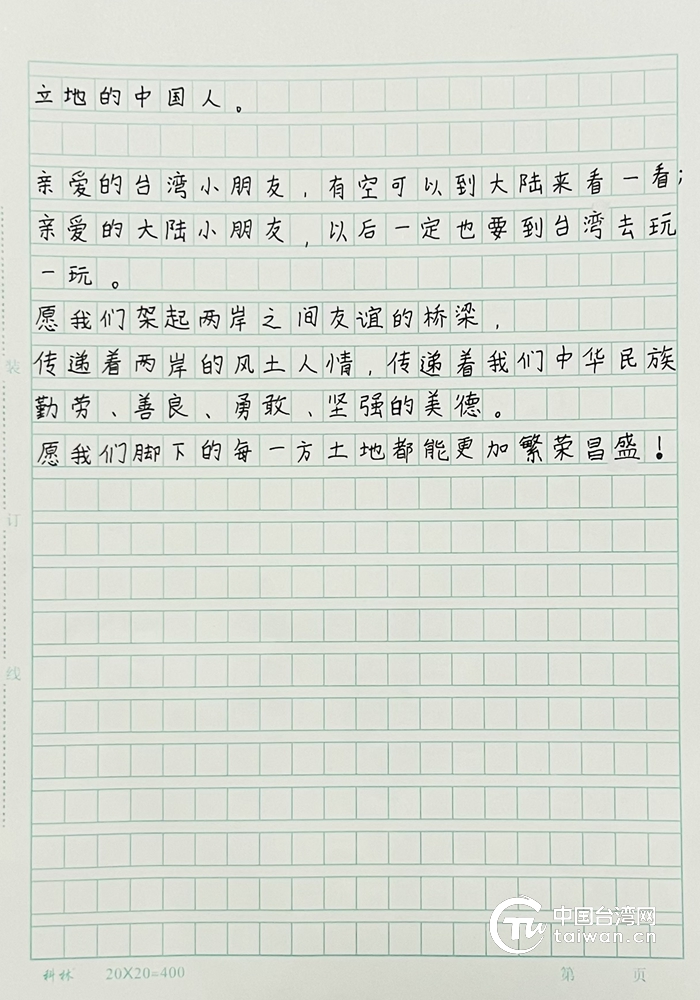 立地的中国人。
亲爱的台湾小朋友，有空可以到大陆来看一看；
亲爱的大陆小朋友，以后一定也要到台湾去玩
一玩。
愿我们架起两岸之间友谊的桥梁，
传递着两岸的风土人情，传递着我们中华民族
勤劳、善良、勇敢、坚强的美德。
愿我们脚下的每一方土地都能更加繁荣昌盛！
装
订
线
中国台湾网
taiwan.cn
科林 20X20=400 第 页